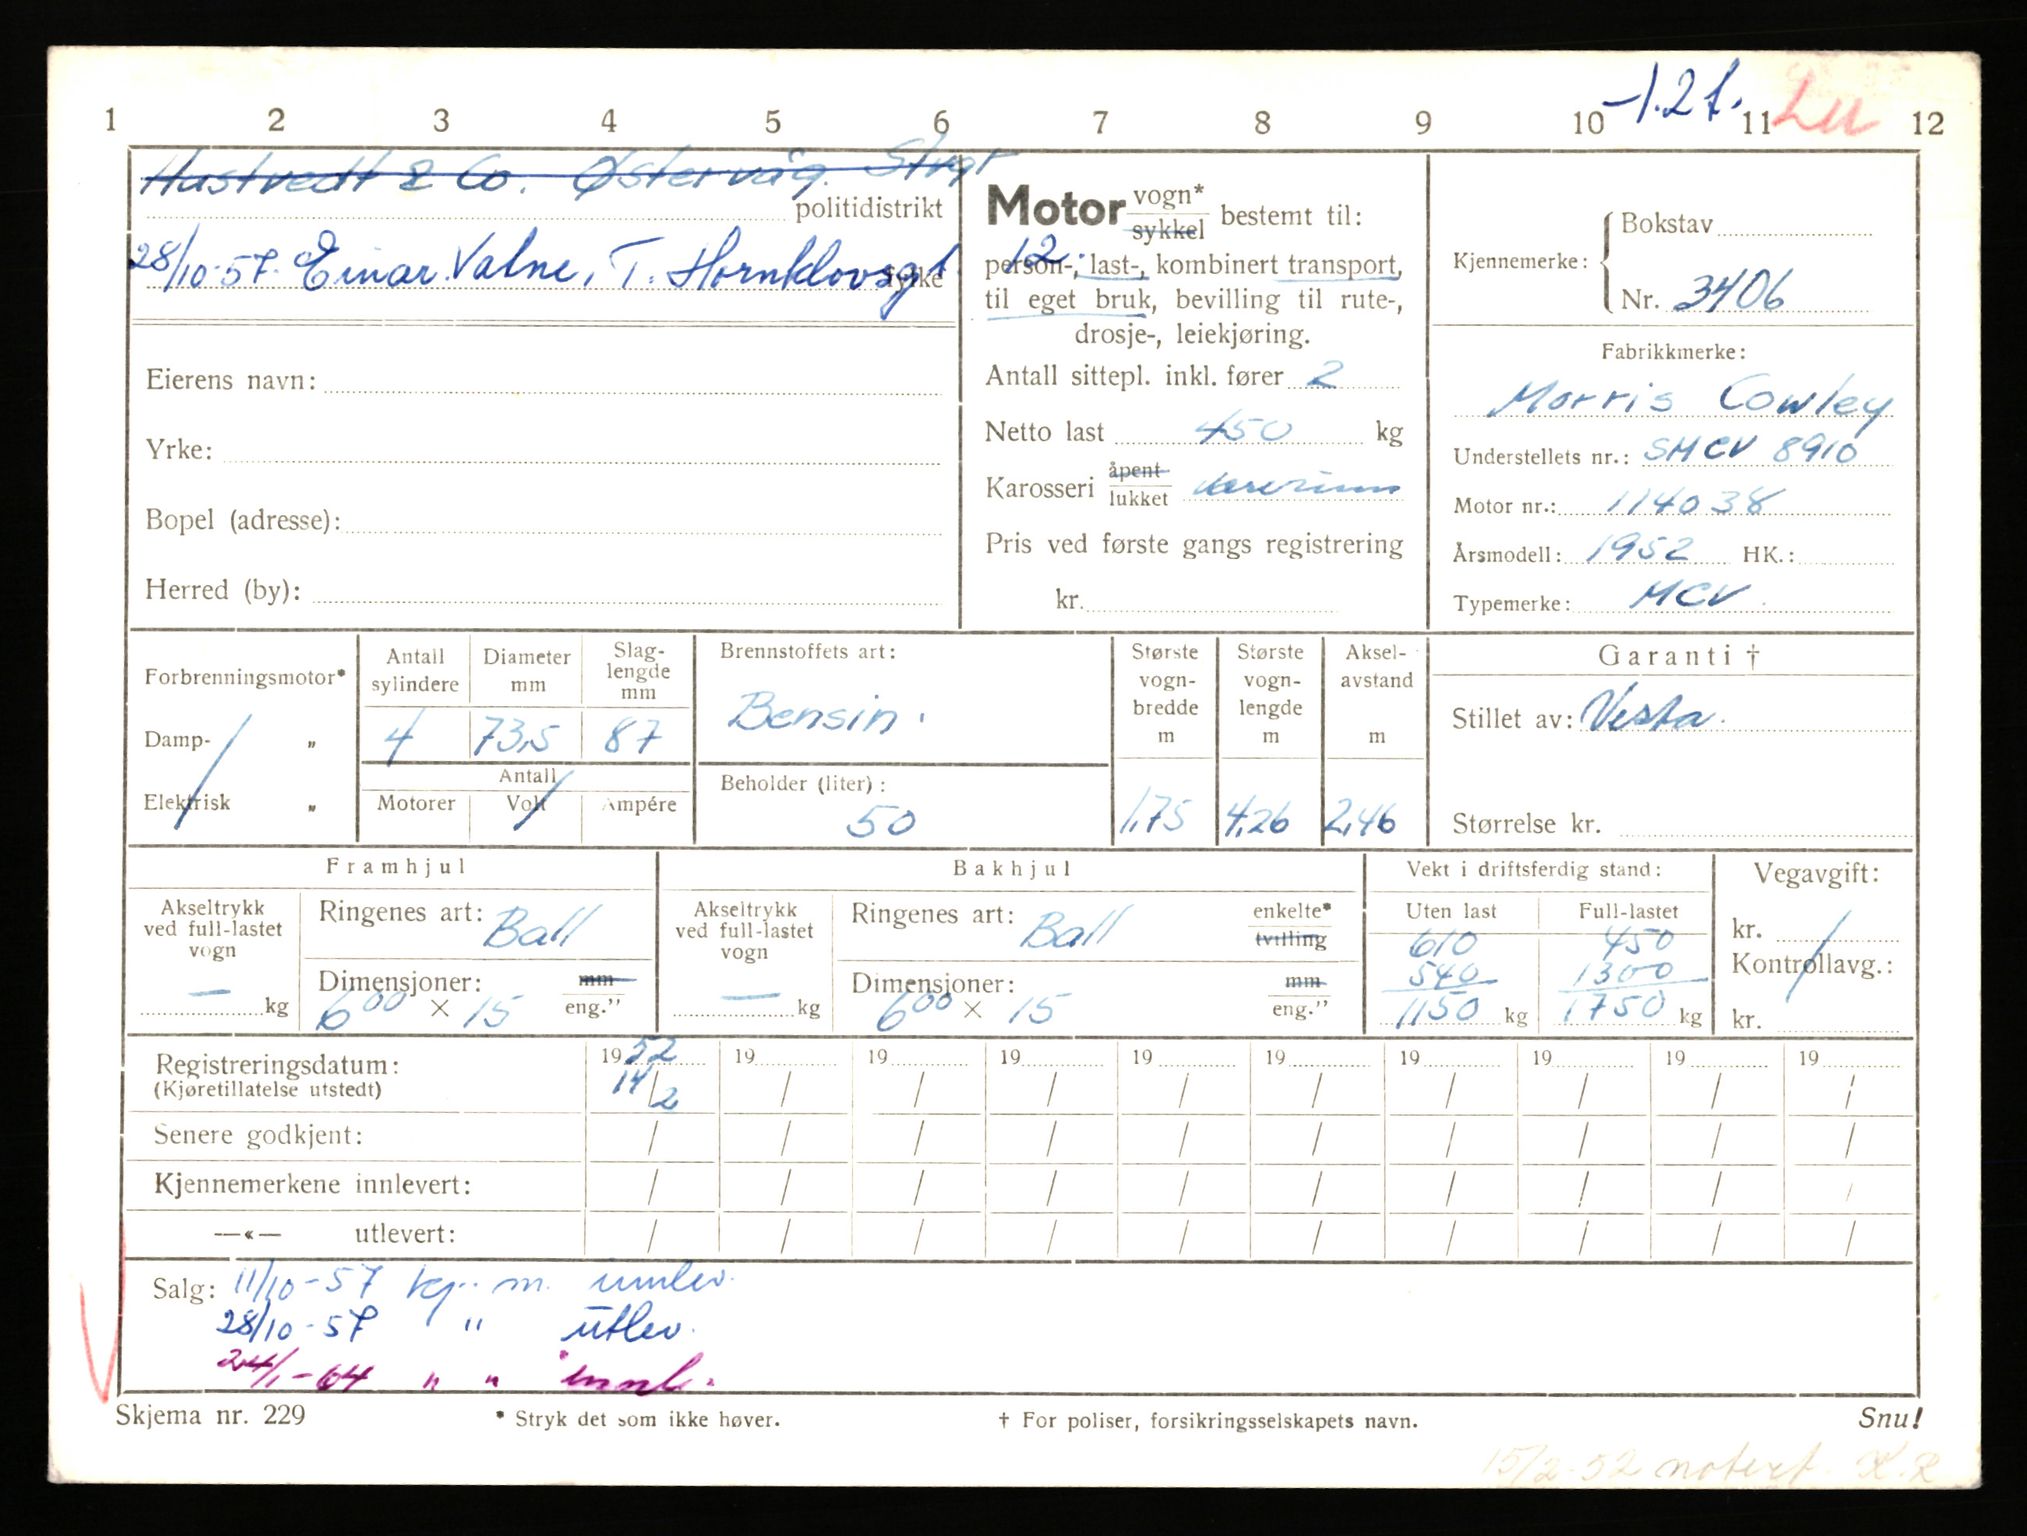 -1.2t. LU
1 2 3 4 5 6 7 8 9 10 11 12
Hustvedt & Co. Østervåg. Stvgr
politidistrikt
28/10-57. Einar Valne, T. Hornklovsgt.
fylke
Eierens navn:
Yrke:
Bopel (adresse):
Herred (by):
Motor vogn* / sykkel bestemt til:
12.
person-, last-, kombinert transport,
til eget bruk, bevilling til rute-,
drosje-, leiekjøring.
Antall sittepl. inkl. fører 2
Netto last 450 kg
Karosseri åpent / lukket varerum
Pris ved første gangs registrering
kr.
Kjennemerke: Bokstav
Nr. 3406
Fabrikkmerke:
Morris Cowley
Understellets nr.: SMCV 8910
Motor nr.: 114038
Årsmodell: 1952 HK.:
Typemerke: MCV.
Forbrenningsmotor*
Damp- „
Elektrisk „
Antall sylindere
4
Diameter mm
73,5
Slaglengde mm
87
Antall
Motorer Volt Ampére
Brennstoffets art:
Bensin.
Beholder (liter):
50
Største vogn-bredde m
1,75
Største vogn-lengde m
4,26
Aksel-avstand m
2,46
Garanti †
Stillet av: Vesta.
Størrelse kr.
Framhjul
Akseltrykk ved full-lastet vogn
— kg
Ringenes art: Ball
Dimensjoner: mm / eng."
6⁰⁰ × 15
Bakhjul
Akseltrykk ved full-lastet vogn
— kg
Ringenes art: Ball enkelte* / tvilling
Dimensjoner: mm / eng."
6⁰⁰ × 15
Vekt i driftsferdig stand:
Uten last Full-lastet
610 450
540 1300
1150 kg 1750 kg
Vegavgift:
kr.
Kontrollavg.:
kr.
Registreringsdatum: 1952 19 19 19 19 19 19 19 19 19
(Kjøretillatelse utstedt) 14/2 / / / / / / / / /
Senere godkjent: / / / / / / / / / /
Kjennemerkene innlevert: / / / / / / / / / /
—«— utlevert: / / / / / / / / / /
Salg: 11/10-57 kj. m. innlev.
28/10-57 " utlev.
24/1-64 " " innl.
Skjema nr. 229
* Stryk det som ikke høver.
† For poliser, forsikringsselskapets navn.
Snu!
15/2-52 notert. K.R